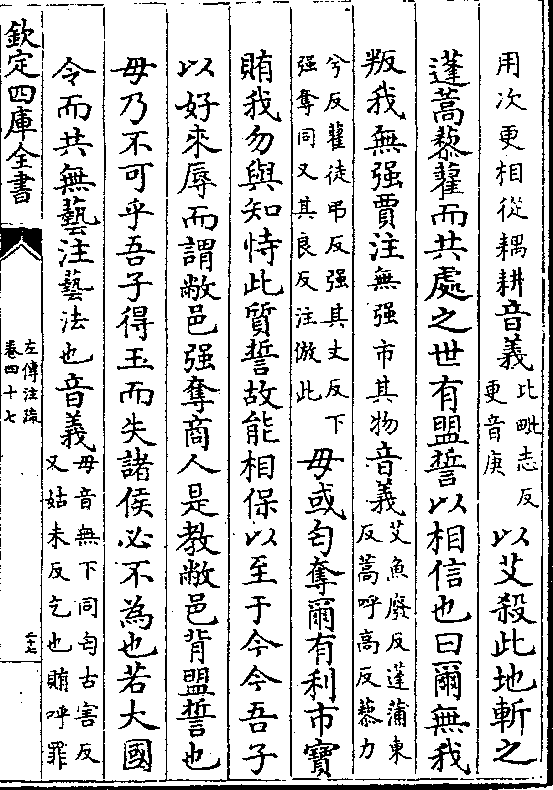 用次更相從耦耕音義比毗志反更音庚以艾殺此地斬之
蓬蒿藜藿而共處之世有盟誓以相信也曰爾無我
叛我無强賈注無强市其物音義艾魚廢反蓬蒲東反蒿呼高反藜力
兮反藿徒弔反强其丈反下强奪同又其良反注倣此毋或匄奪爾有利市寳
賄我勿與知恃此質誓故能相保以至于今今吾子
以好來辱而謂敝邑强奪商人是教敝邑背盟誓也
毋乃不可乎吾子得玉而失諸侯必不為也若大國
令而共無藝注藝法也音義毋音無下同匄古害反又姑未反乞也賄呼罪
欽定四庫全書
左傳注疏
卷四十七